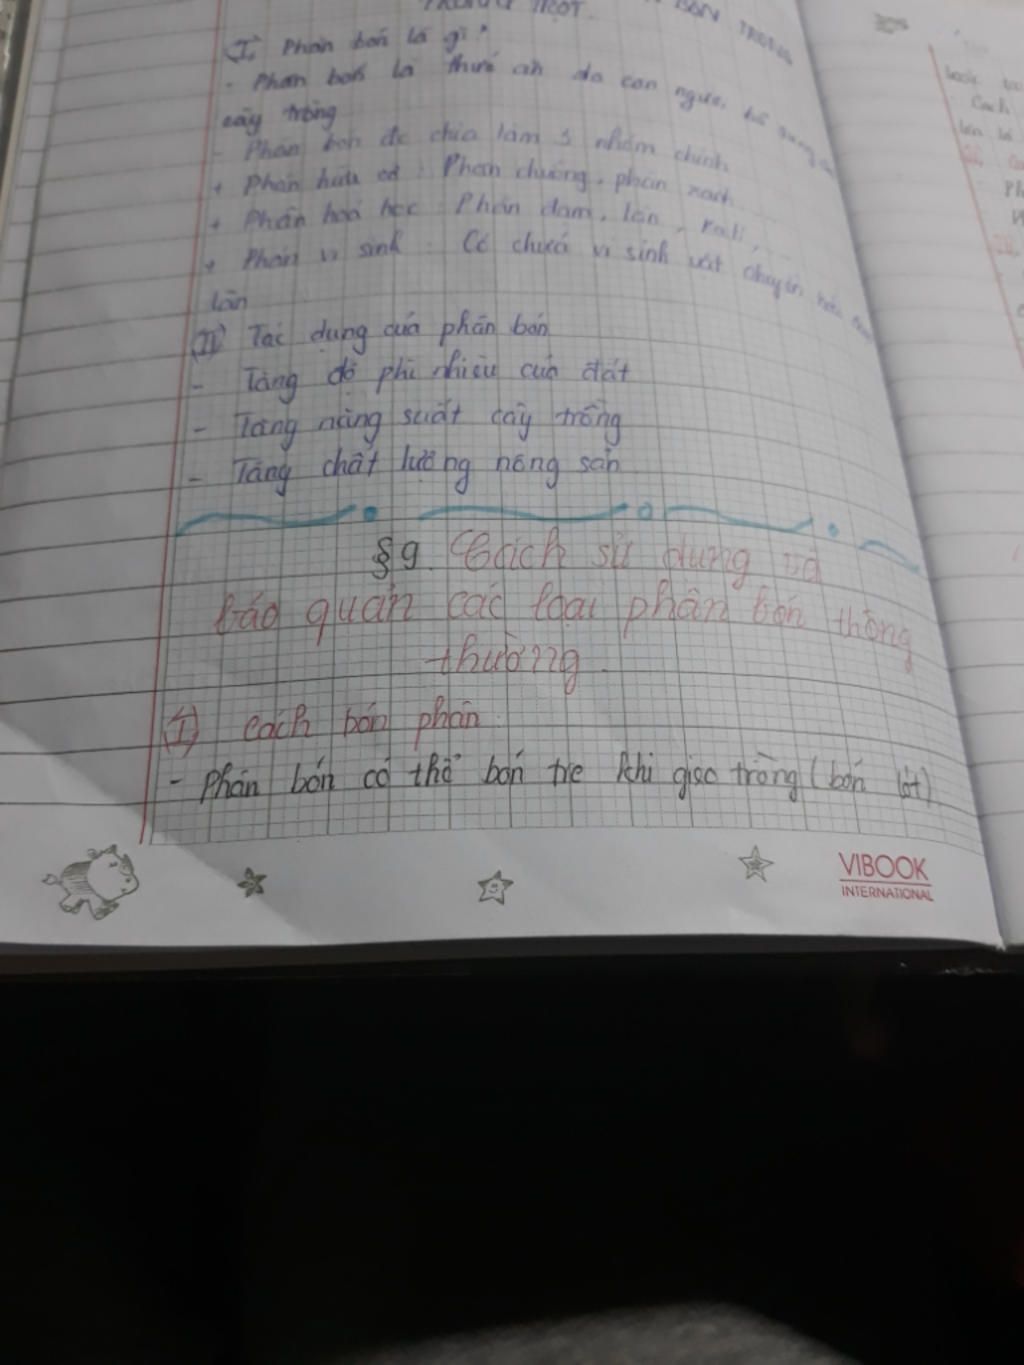 TRỌT.
BÓN TRONG
I) Phân bón là gì?
- Phân bón là thức ăn do con người bổ sung
cây trồng
- Phân bón đc chia làm 3 nhóm chính
+ Phân hữu cơ: Phân chuồng, phân xanh
+ Phân hoá học: Phân đạm, lân, Kali,
+ Phân vi sinh: Có chứa vi sinh vật chuyển hóa
lân
II) Tác dụng của phân bón
- Tăng độ phì nhiêu của đất
- Tăng năng suất cây trồng
- Tăng chất lượng nông sản
§9. Cách sử dụng và
bảo quản các loại phân bón thông
thường.
I) Cách bón phân.
- Phân bón có thể bón trc khi gieo trồng (bón lót)
VIBOOK
INTERNATIONAL
Cách